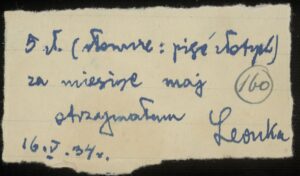 5 zł. (słownie: pięć złotych)
za miesiąc maj
160
otrzymałam
Leonka
16.V.34r.